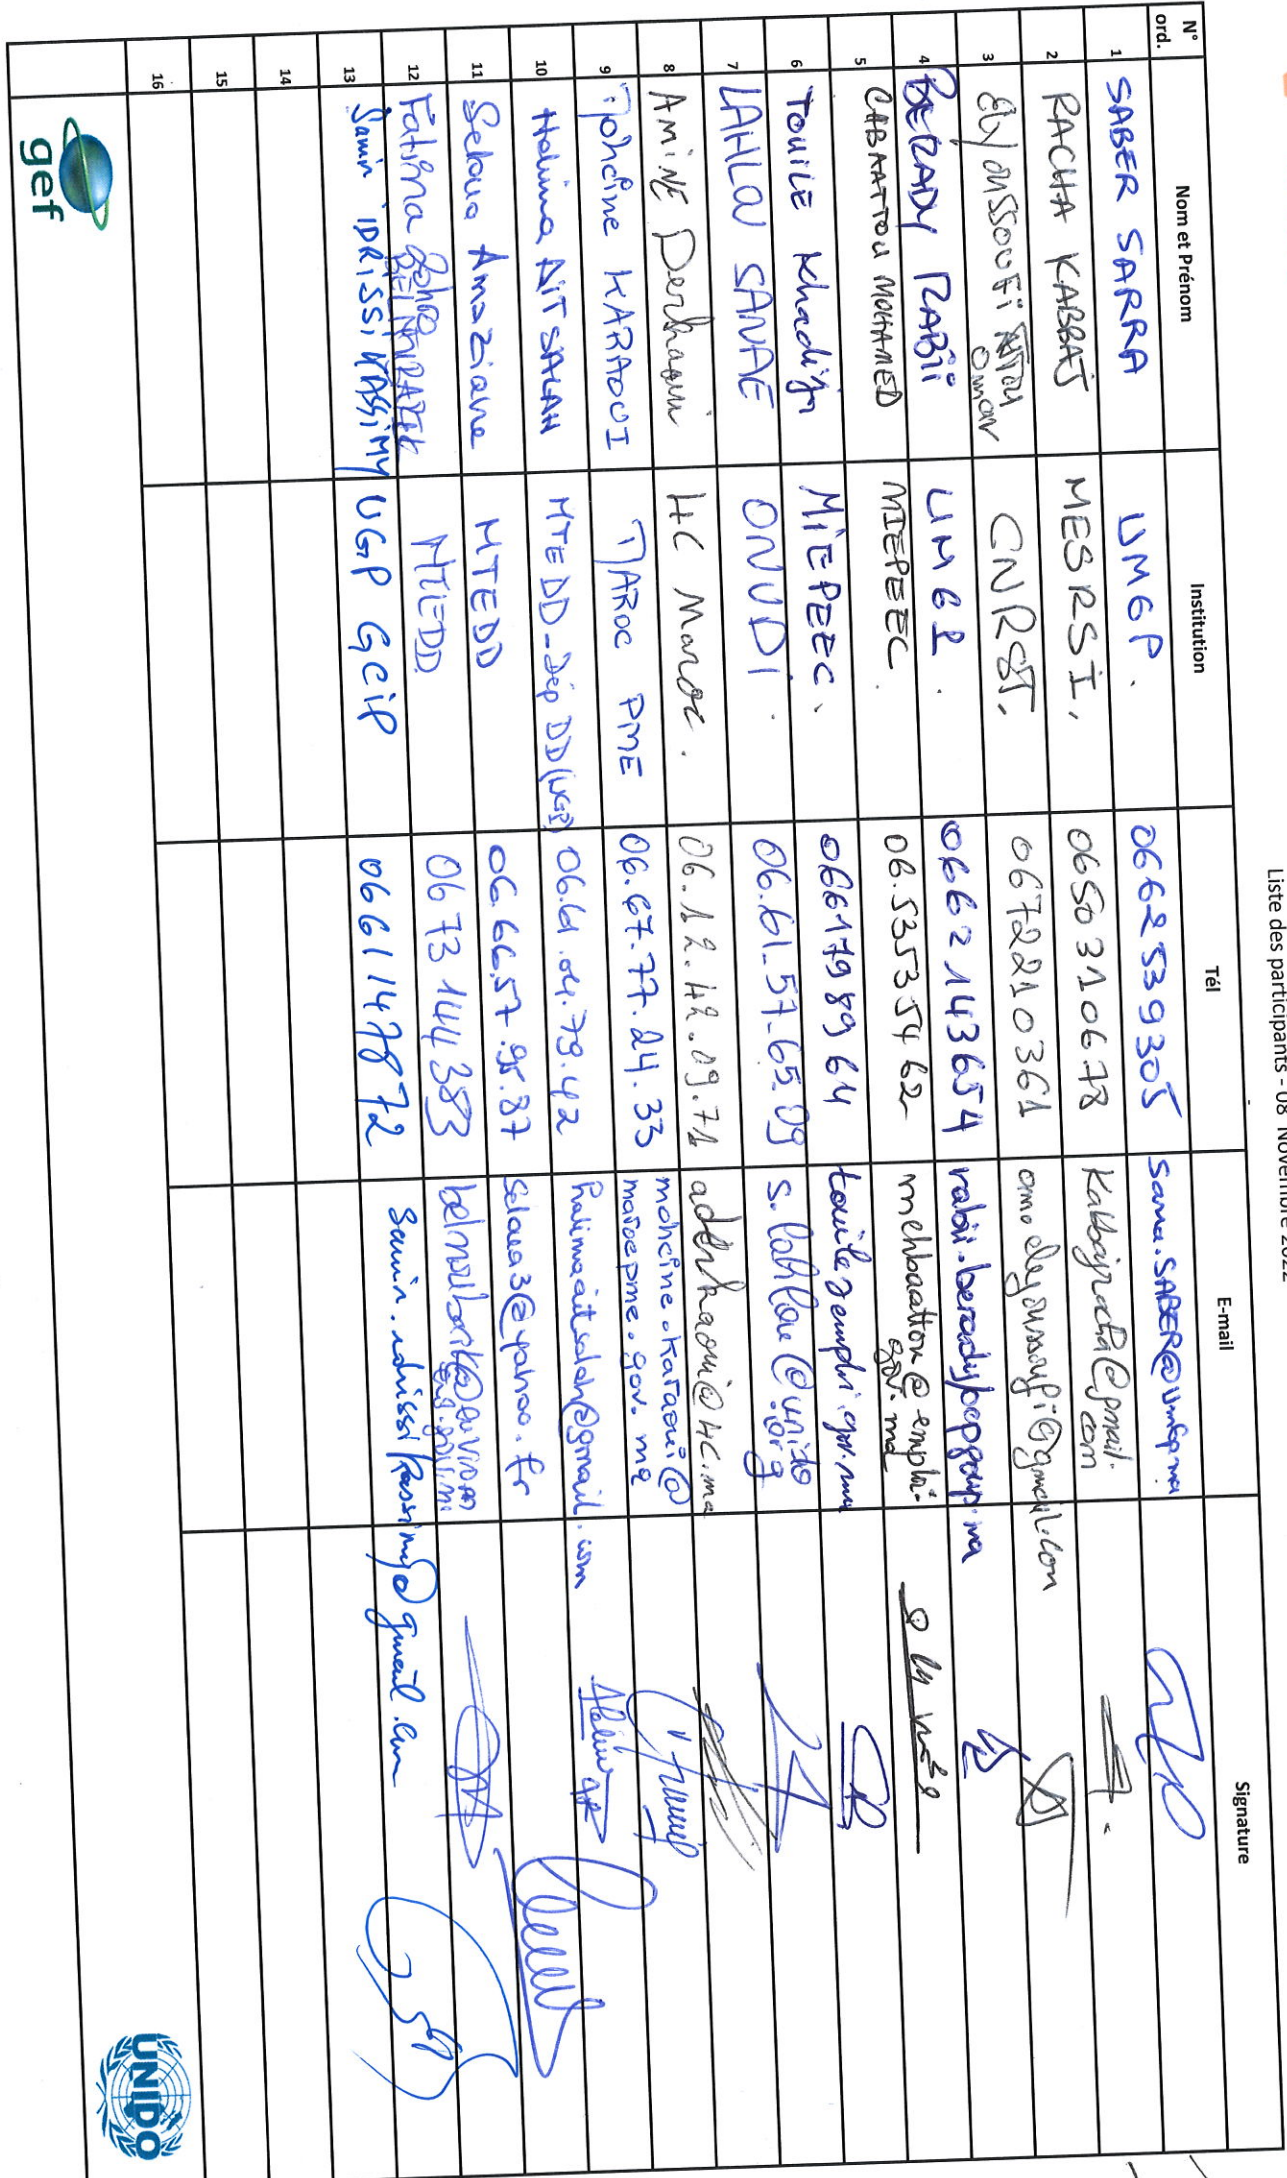 Liste des participants - 08 Novembre 2022
N° ord. Nom et Prénom Institution Tél E-mail Signature
1 SABER SARRA UM6P. 0662539305
2 RACHA KABBAJ MESRSI, 0650310678
3 Elyoussoufi Omar CNRST, 0672210361
4 BERADY RABII UM6P. 0662143654
5 CHBAATTOU MOHAMED MIEPEEC. 06.53535462
6 TOUILE Khadija MIEPEEC. 0661798964
7 LAHLOU SANAE ONUDI. 06.61-57-65.09 s.lahlou@unido.org
8 AMINE Derhaoui HC Maroc. 06.12.42.09.71 aderhaoui@HC.ma
9 Mohcine KARAOUI MAROC PME 06.67.77.24.33 mohcine.karaoui@marocpme.gov.ma
10 Halima AIT SALAH MTEDD-Dép DD(UGP) 06.61.04.79.42 halimaaitsalah@gmail.com
11 Seloua Amaziane MTEDD 06.66.57.95.87 seloua3@yahoo.fr
12 Fatima Zohra BELMOUBARIK MTEDD 0673144383
13 Samir IDRISSI KASSIMY UGP GCIP 0661147872 samir.idrissikassimy@gmail.com
14
15
16
gef
UNIDO